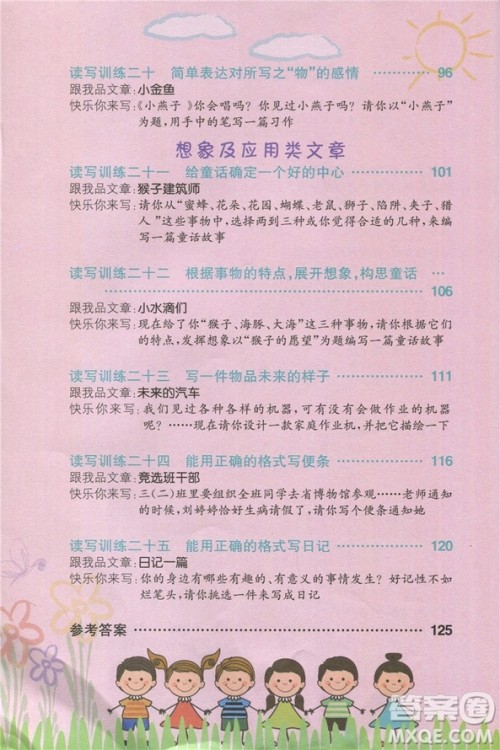 读写训练二十　简单表达对所写之“物”的感情 ………… 96
跟我品文章:小金鱼
快乐你来写:《小燕子》你会唱吗？你见过小燕子吗？请你以“小燕子”
为题,用手中的笔写一篇习作
想象及应用类文章
读写训练二十一　给童话确定一个好的中心 ………… 101
跟我品文章:猴子建筑师
快乐你来写:请你从“蜜蜂、花朵、花园、蝴蝶、老鼠、狮子、陷阱、夹子、猎
人”这些事物中,选择两到三种或你觉得合适的几种,来编
写一篇童话故事
读写训练二十二　根据事物的特点,展开想象,构思童话　…
………… 106
跟我品文章:小水滴们
快乐你来写:现在给了你“猴子、海豚、大海”这三种事物,请你根据它们
的特点,发挥想象以“猴子的愿望”为题编写一篇童话故事
读写训练二十三　写一件物品未来的样子 ………… 111
跟我品文章:未来的汽车
快乐你来写:我们见过各种各样的机器,可有没有会做作业的机器
呢？……现在请你设计一款家庭作业机,并描绘一下
读写训练二十四　能用正确的格式写便条 ………… 116
跟我品文章:竞选班干部
快乐你来写:三(二)班里要组织全班同学去省博物馆参观……老师通知
的时候,刘婷婷恰好生病请假了,请你写个便条通知她
读写训练二十五　能用正确的格式写日记 ………… 120
跟我品文章:日记一篇
快乐你来写:你的身边有哪些有趣的、有意义的事情发生？好记性不如
烂笔头,请你挑选一件来写成日记
参考答案 ………… 125
答案圈
MXQE.COM